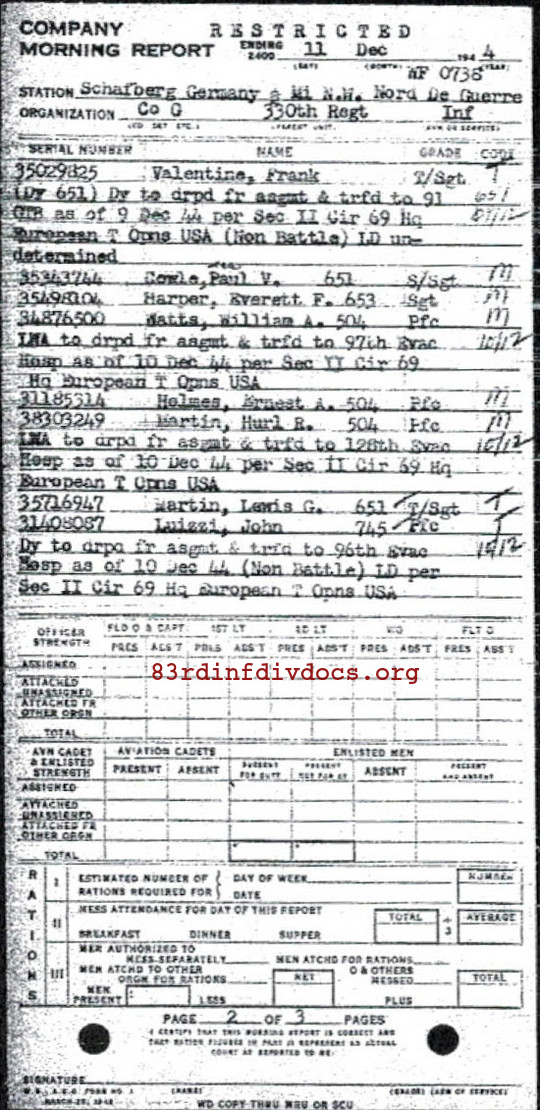 COMPANY RESTRICTED
MORNING REPORT ENDING 2400 11 Dec 1944
WF 0738
STATION Schafberg Germany 2 Mi N.W. Nord De Guerre
ORGANIZATION Co G 330th Regt Inf
SERIAL NUMBER NAME GRADE CODE
35029825 Valentine, Frank T/Sgt T
(Dy 651) Dy to drpd fr asgmt & trfd to 91 651
as of 9 Dec 44 per Sec II Cir 69 Hq
European T Opns USA (Non Battle) LD un-
determined
35343744 Paul V. 651 S/Sgt M
35498104 Harper, Everett F. 653 Sgt M
34876500 Watts, William A. 504 Pfc M
LWA to drpd fr asgmt & trfd to 97th Evac 10/12
Hosp as of 10 Dec 44 per Sec II Cir 69
Hq European T Opns USA
31185314 Holmes, Ernest A. 504 Pfc M
38303249 Martin, Hurl R. 504 Pfc M
LWA to drpd fr asgmt & trfd to 128th Evac 10/12
Hosp as of 10 Dec 44 per Sec II Cir 69 Hq
European T Opns USA
35716947 Martin, Lewis G. 651 T/Sgt T
31408087 Luizzi, John 745 Pfc T
Dy to drpd fr asgmt & trfd to 96th Evac 10/12
Hosp as of 10 Dec 44 (Non Battle) LD per
Sec II Cir 69 Hq European T Opns USA
OFFICER STRENGTH FLD O & CAPT 1ST LT 2D LT WO FLT O
PRES ABS'T PRES ABS'T PRES ABS'T PRES ABS'T PRES ABS'T
ASSIGNED
83rdinfdivdocs.org
ATTACHED UNASSIGNED
ATTACHED FR OTHER ORGN
TOTAL
AVN CADET & ENLISTED STRENGTH AVIATION CADETS ENLISTED MEN
PRESENT ABSENT PRESENT FOR DUTY PRESENT NOT FOR DY ABSENT PRESENT AND ABSENT
ASSIGNED
ATTACHED UNASSIGNED
ATTACHED FR OTHER ORGN
TOTAL
RATIONS
I ESTIMATED NUMBER OF RATIONS REQUIRED FOR DAY OF WEEK DATE NUMBER
II MESS ATTENDANCE FOR DAY OF THIS REPORT TOTAL ÷ 3 AVERAGE
BREAKFAST DINNER SUPPER
III MEN AUTHORIZED TO MESS SEPARATELY MEN ATCHD FOR RATIONS
MEN ATCHD TO OTHER ORGN FOR RATIONS NET O & OTHERS MESSED TOTAL
MEN PRESENT LESS PLUS
PAGE 2 OF 3 PAGES
I CERTIFY THAT THIS MORNING REPORT IS CORRECT AND
THAT RATION FIGURES IN PART III REPRESENT AN ACTUAL
COUNT AS REPORTED TO ME:
SIGNATURE
W.D., A.G.O. FORM NO. 1 (NAME) (GRADE) (ARM OF SERVICE)
MARCH
WD COPY THRU MRU OR SCU